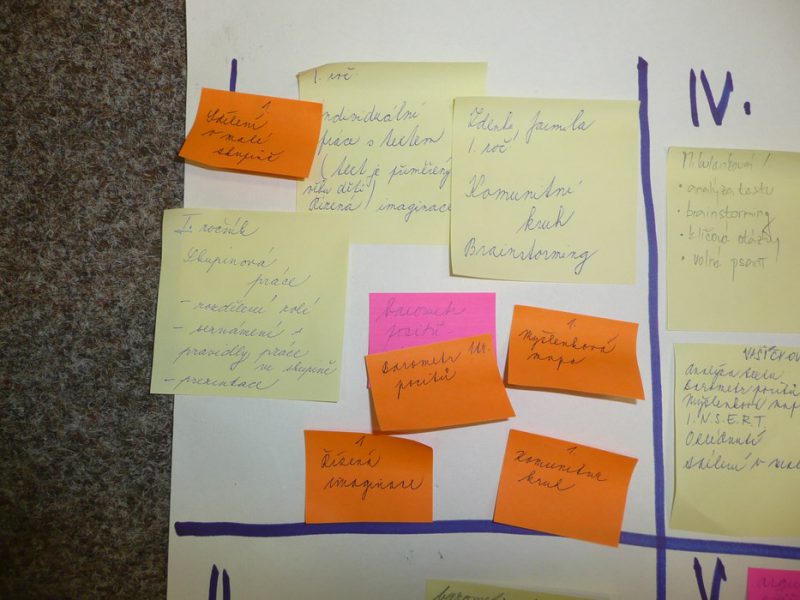 1.
Sdílení
v malé
skupině
1. roč.
individuální
práce s textem
(text je přiměřený
věku dětí)
Řízená imaginace
Zdenka, Jarmila
1. roč
Komunitní
kruh
Brainstorming
I. ročník
Skupinová
práce
- rozdělení rolí
- seznámení s
pravidly práce
ve skupině
- prezentace
barometr
pocitů
barometr
pocitů
1.
Myšlenková
mapa
1
Řízená
imaginace
1.
Komunitní
kruh
IV.
• analýza textu
• brainstorming
• klíčové otázky
• volné psaní
Analýza textu
barometr pocitů
Myšlenková mapa
I.N.S.E.R.T
sdílení v
II
V.
barometr